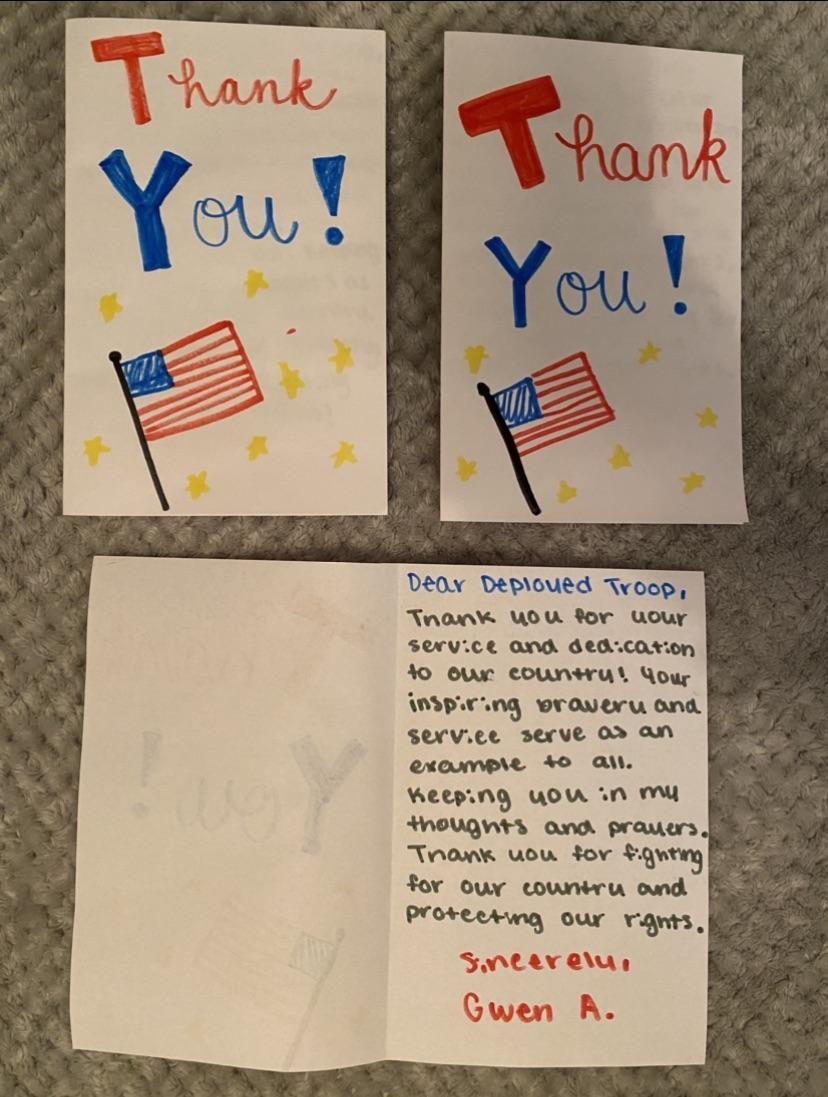 Thank
You!
Thank
You!
Dear Deployed Troop,
Thank you for your
service and dedication
to our country! Your
inspiring bravery and
service serve as an
example to all.
Keeping you in my
thoughts and prayers.
Thank you for fighting
for our country and
protecting our rights.
Sincerely,
Gwen A.